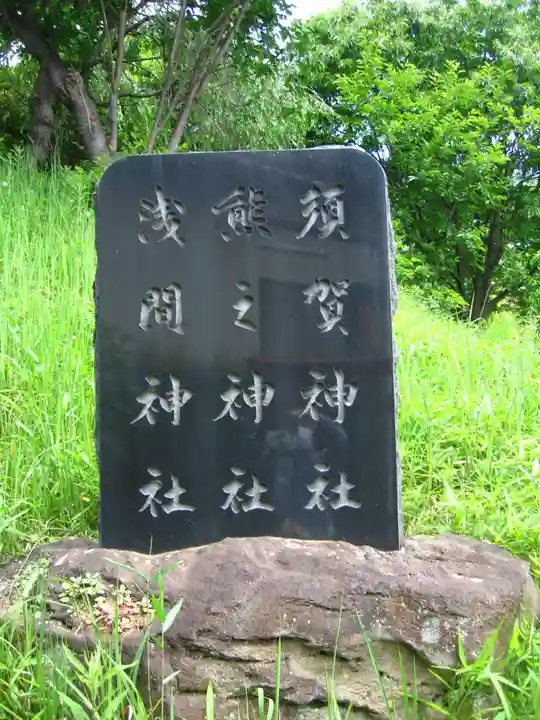 須賀神社
熊之神社
浅間神社